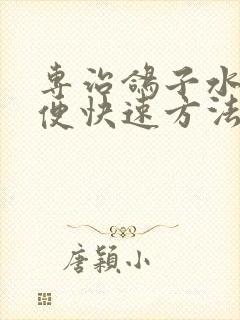 专治鸽子水
便快速方法
唐颖小